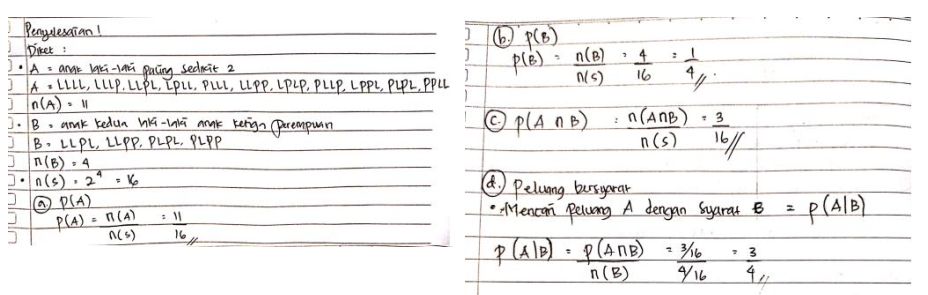 Penyelesaian !
Diket :
• A = anak laki-laki paling sedikit 2
A = LLLL, LLLP, LLPL, LPLL, PLLL, LLPP, LPLP, PLLP, LPPL, PLPL, PPLL
n(A) = 11
• B = anak kedua laki-laki anak ketiga perempuan
B = LLPL, LLPP, PLPL, PLPP
n(B) = 4
• n(s) = 2⁴ = 16
(a) P(A)
P(A) = n(A) / n(s) = 11 / 16 //
(b.) P(B)
P(B) = n(B) / n(s) = 4 / 16 = 1 / 4 //.
(c.) P(A ∩ B) = n(A∩B) / n(s) = 3 / 16 //
(d.) Peluang bersyarat
• Mencari Peluang A dengan syarat B = P(A|B)
P(A|B) = P(A∩B) / n(B) = 3/16 / 4/16 = 3 / 4 //